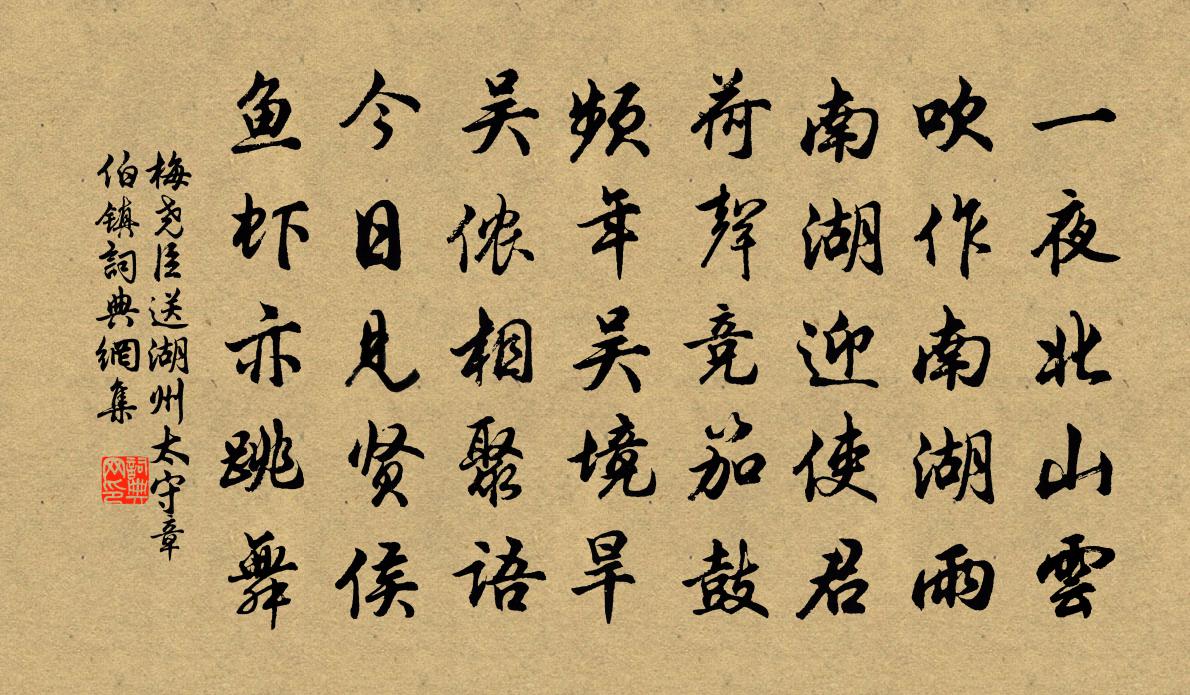 一夜北山雲
吹作南湖雨
南湖迎使君
荷聲竞笳鼓
频年吴境旱
吴侬相聚語
今日見贤侯
鱼虾亦跳舞
梅尧臣送湖州太守章
伯镇詞典網集
詞典
网印